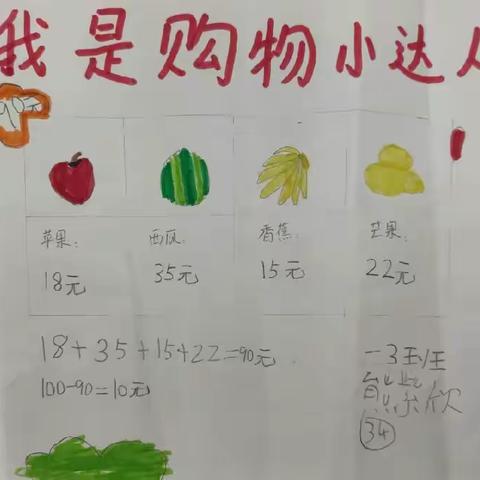 我是购物小达人
苹果: 西瓜: 香蕉: 芒果:
18元 35元 15元 22元
18+35+15+22=90元
100-90=10元
一3班
熊
34